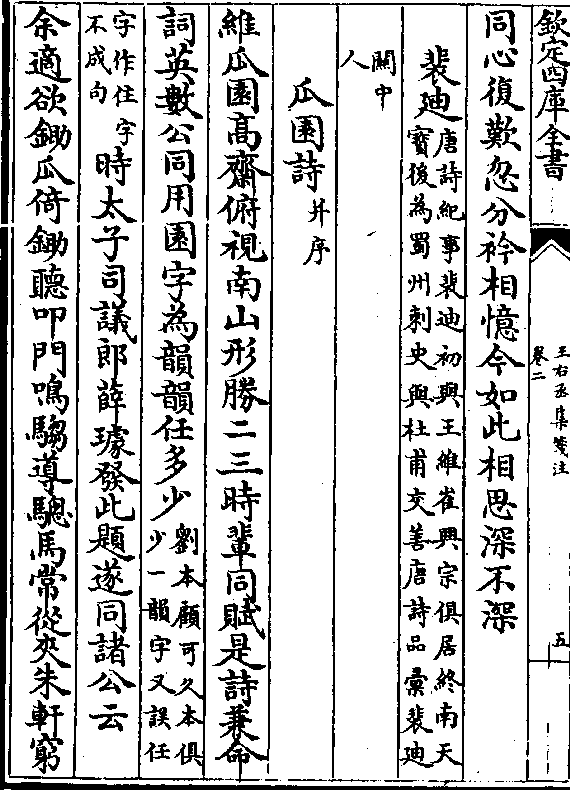 欽定四庫全書
王右丞集箋注
卷二
五
同心復歎忽分衿相憶今如此相思深不深
裴迪唐詩紀事裴迪初與王維崔興宗俱居終南天
寳後為蜀州刺史與杜甫交善唐詩品彙裴迪
關中
人
瓜園詩并序
維瓜園髙齋俯視南山形勝二三時輩同賦是詩兼命
詞英數公同用園字為韻韻任多少劉本顧可久本俱
少一韻字又誤任
字作住字
不成句
時太子司議郎薛璩發此題遂同諸公云
余適欲鋤瓜倚鋤聽叩門鳴騶導驄馬常從夾朱軒窮